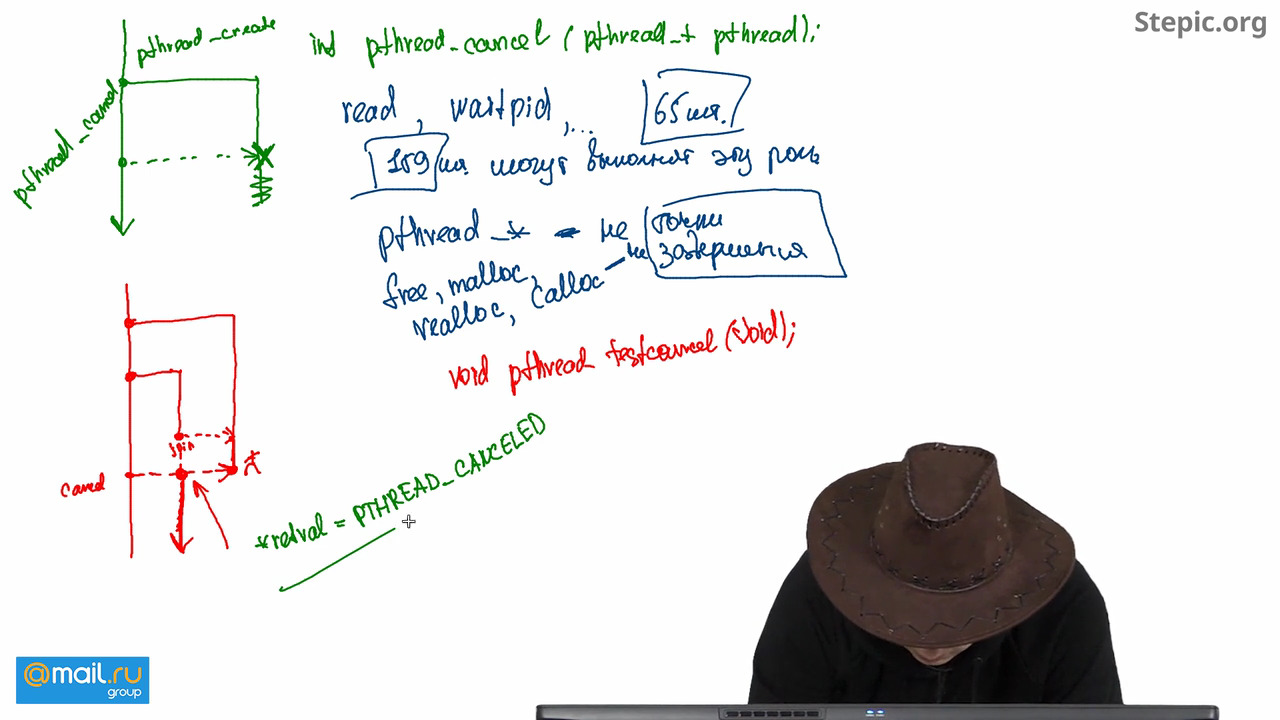 Stepic.org
pthread_create
int pthread_cancel (pthread_t pthread);
pthread_cancel
read, waitpid, ...
65 шт.
189 шт могут выполнять эту роль
pthread_* - не точки завершения
free, malloc,
realloc, calloc - не
void pthread_testcancel (void);
join
cancel
*retval = PTHREAD_CANCELED
@mail.ru
group